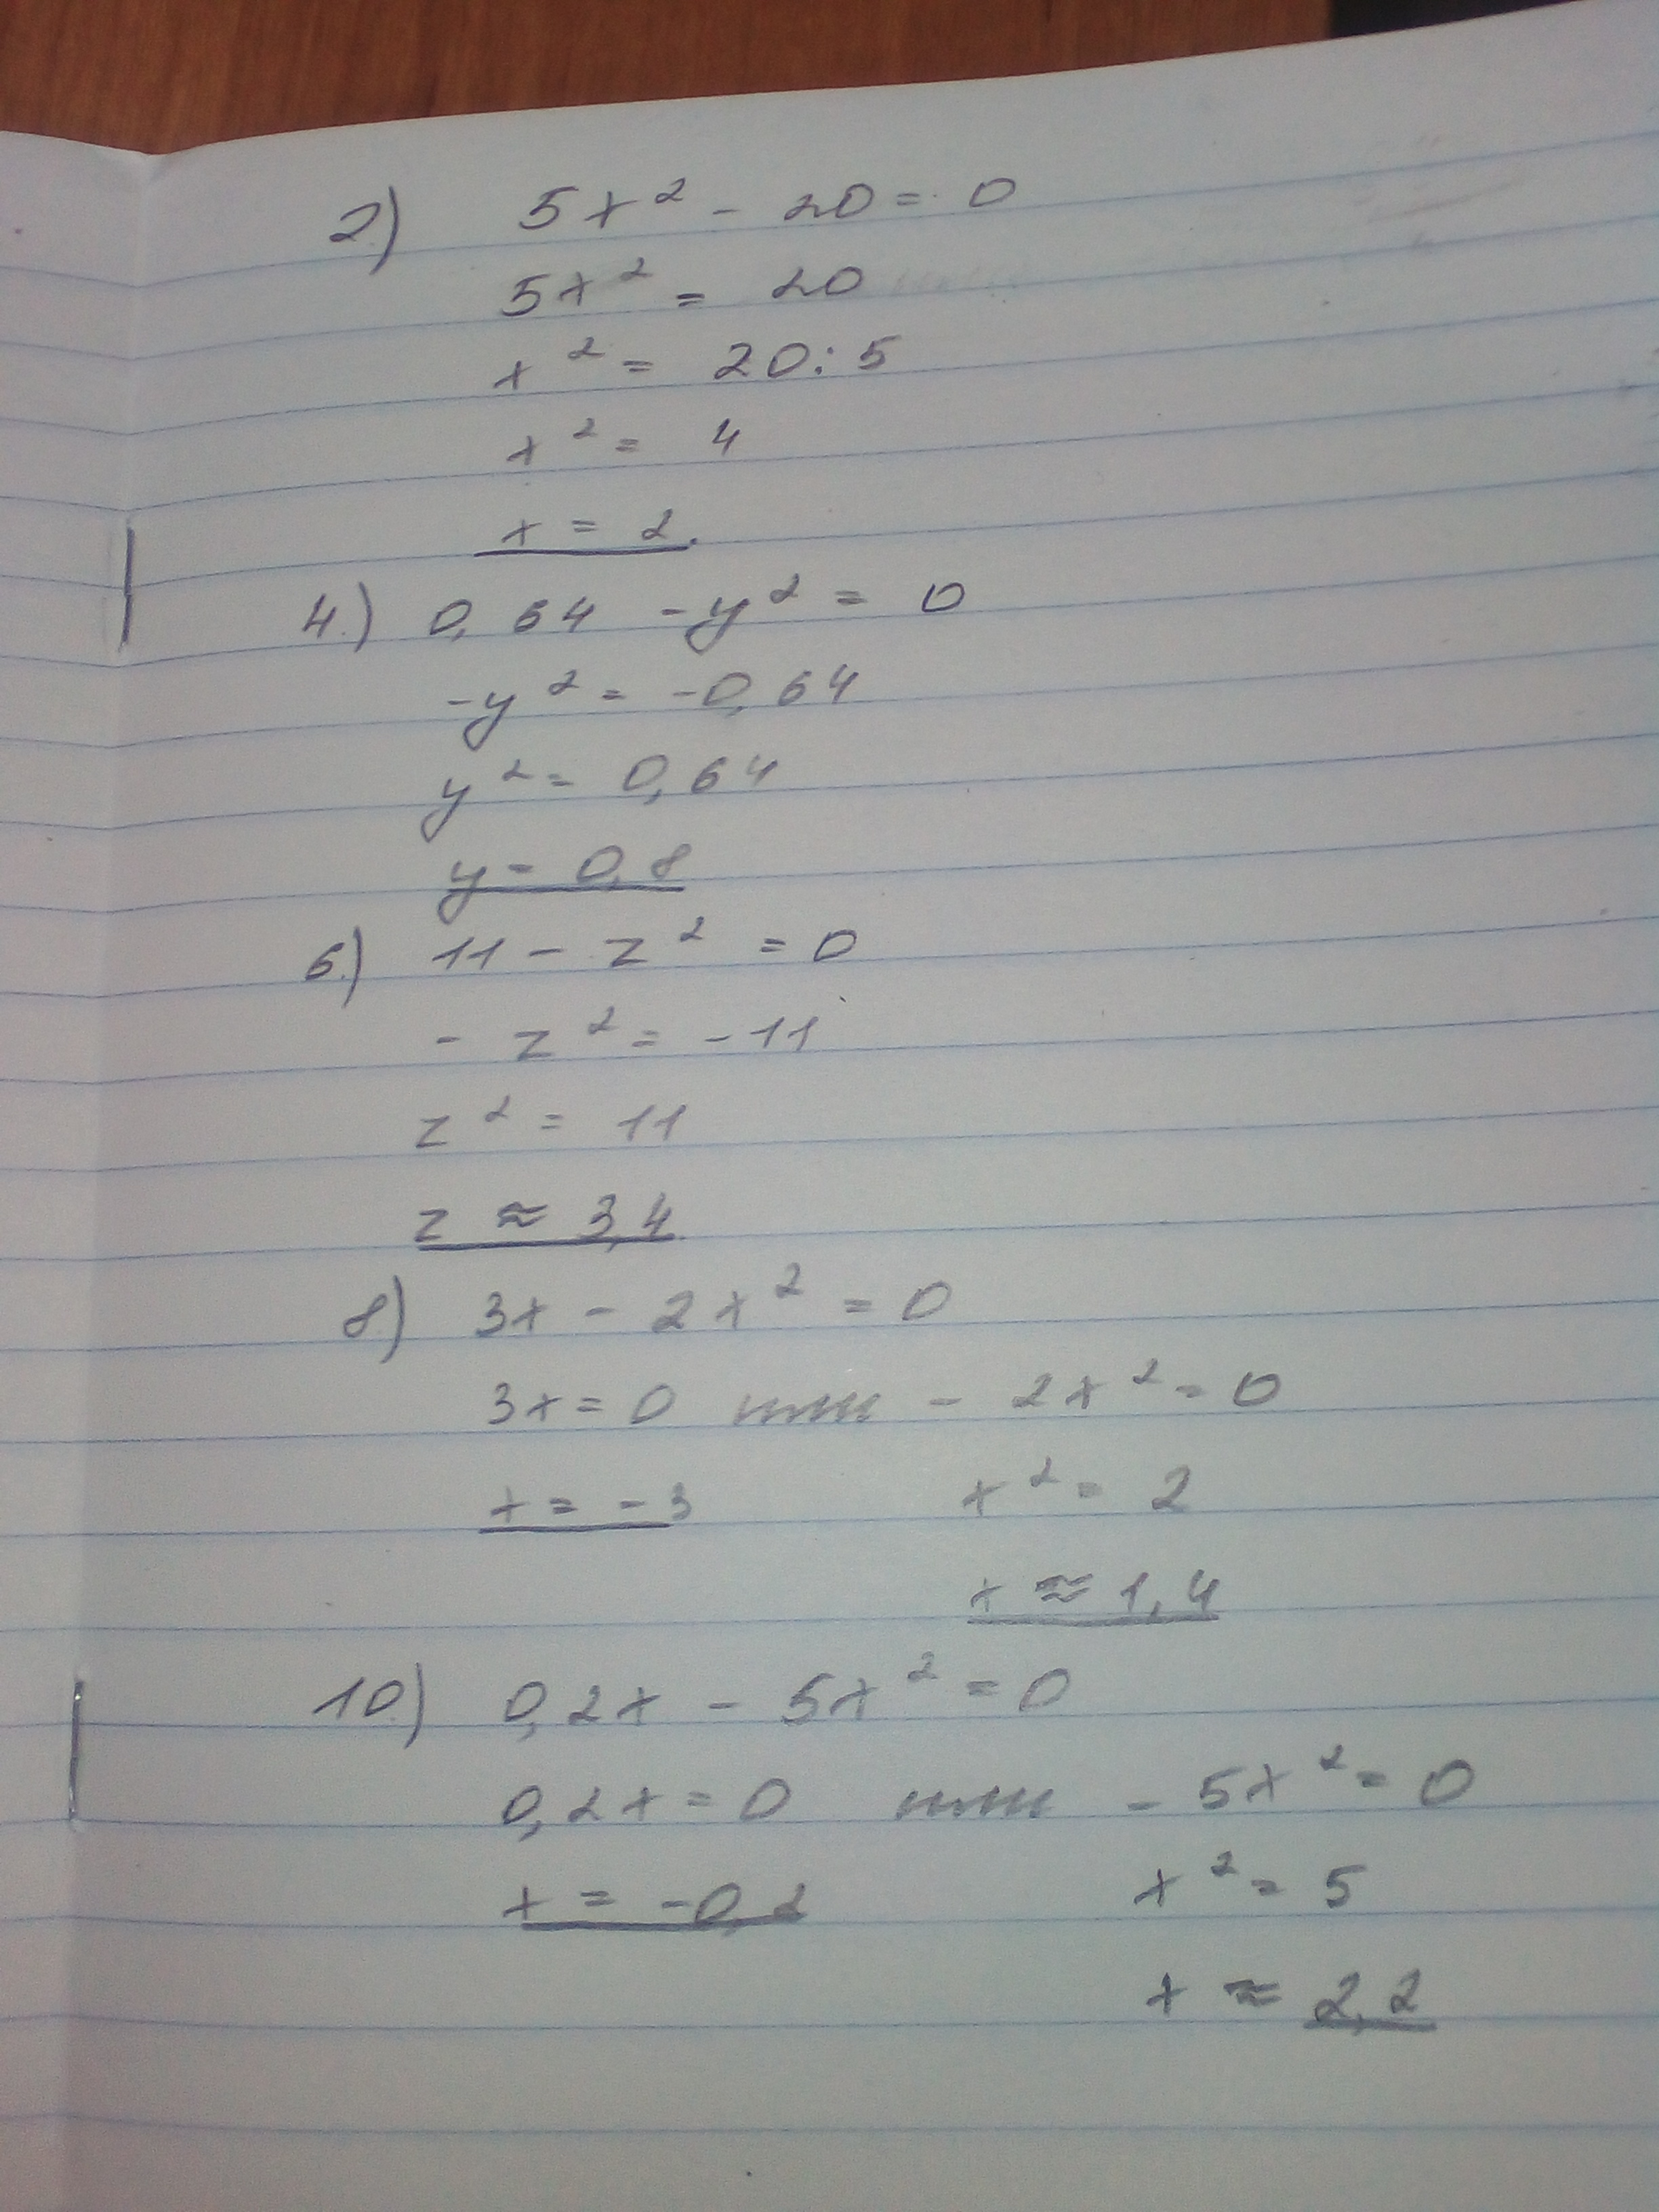 2) 5x² - 20 = 0
5x² = 20
x² = 20:5
x² = 4
x = 2.
4.) 0,64 - y² = 0
-y² = -0,64
y² = 0,64
y = 0,8
6.) 11 - z² = 0
- z² = -11
z² = 11
z ≈ 3,4
8) 3x - 2x² = 0
3x = 0 или - 2x² = 0
x = -3 x² = 2
x ≈ 1,4
10.) 0,2x - 5x² = 0
0,2x = 0 или - 5x² = 0
x = -0,2 x² = 5
x ≈ 2,2